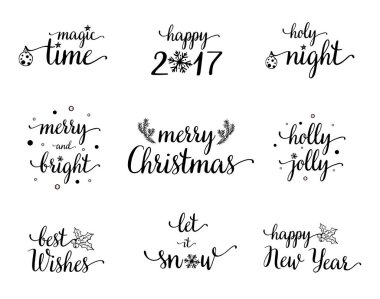 magic
time
happy
2017
holy
night
merry
and
bright
merry
Christmas
holly
jolly
best
Wishes
let
it
snow
happy
New Year